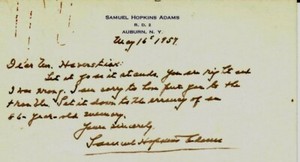 SAMUEL HOPKINS ADAMS
R. D. 2
AUBURN, N. Y.
May 16 1957.
Dear Mr.
Let it go as it stands. You are right and
I was wrong. I am sorry to have put you to the
trouble. Set it down to the errancy of an
86-year-old memory.
Yours sincerely
Samuel Hopkins Adams